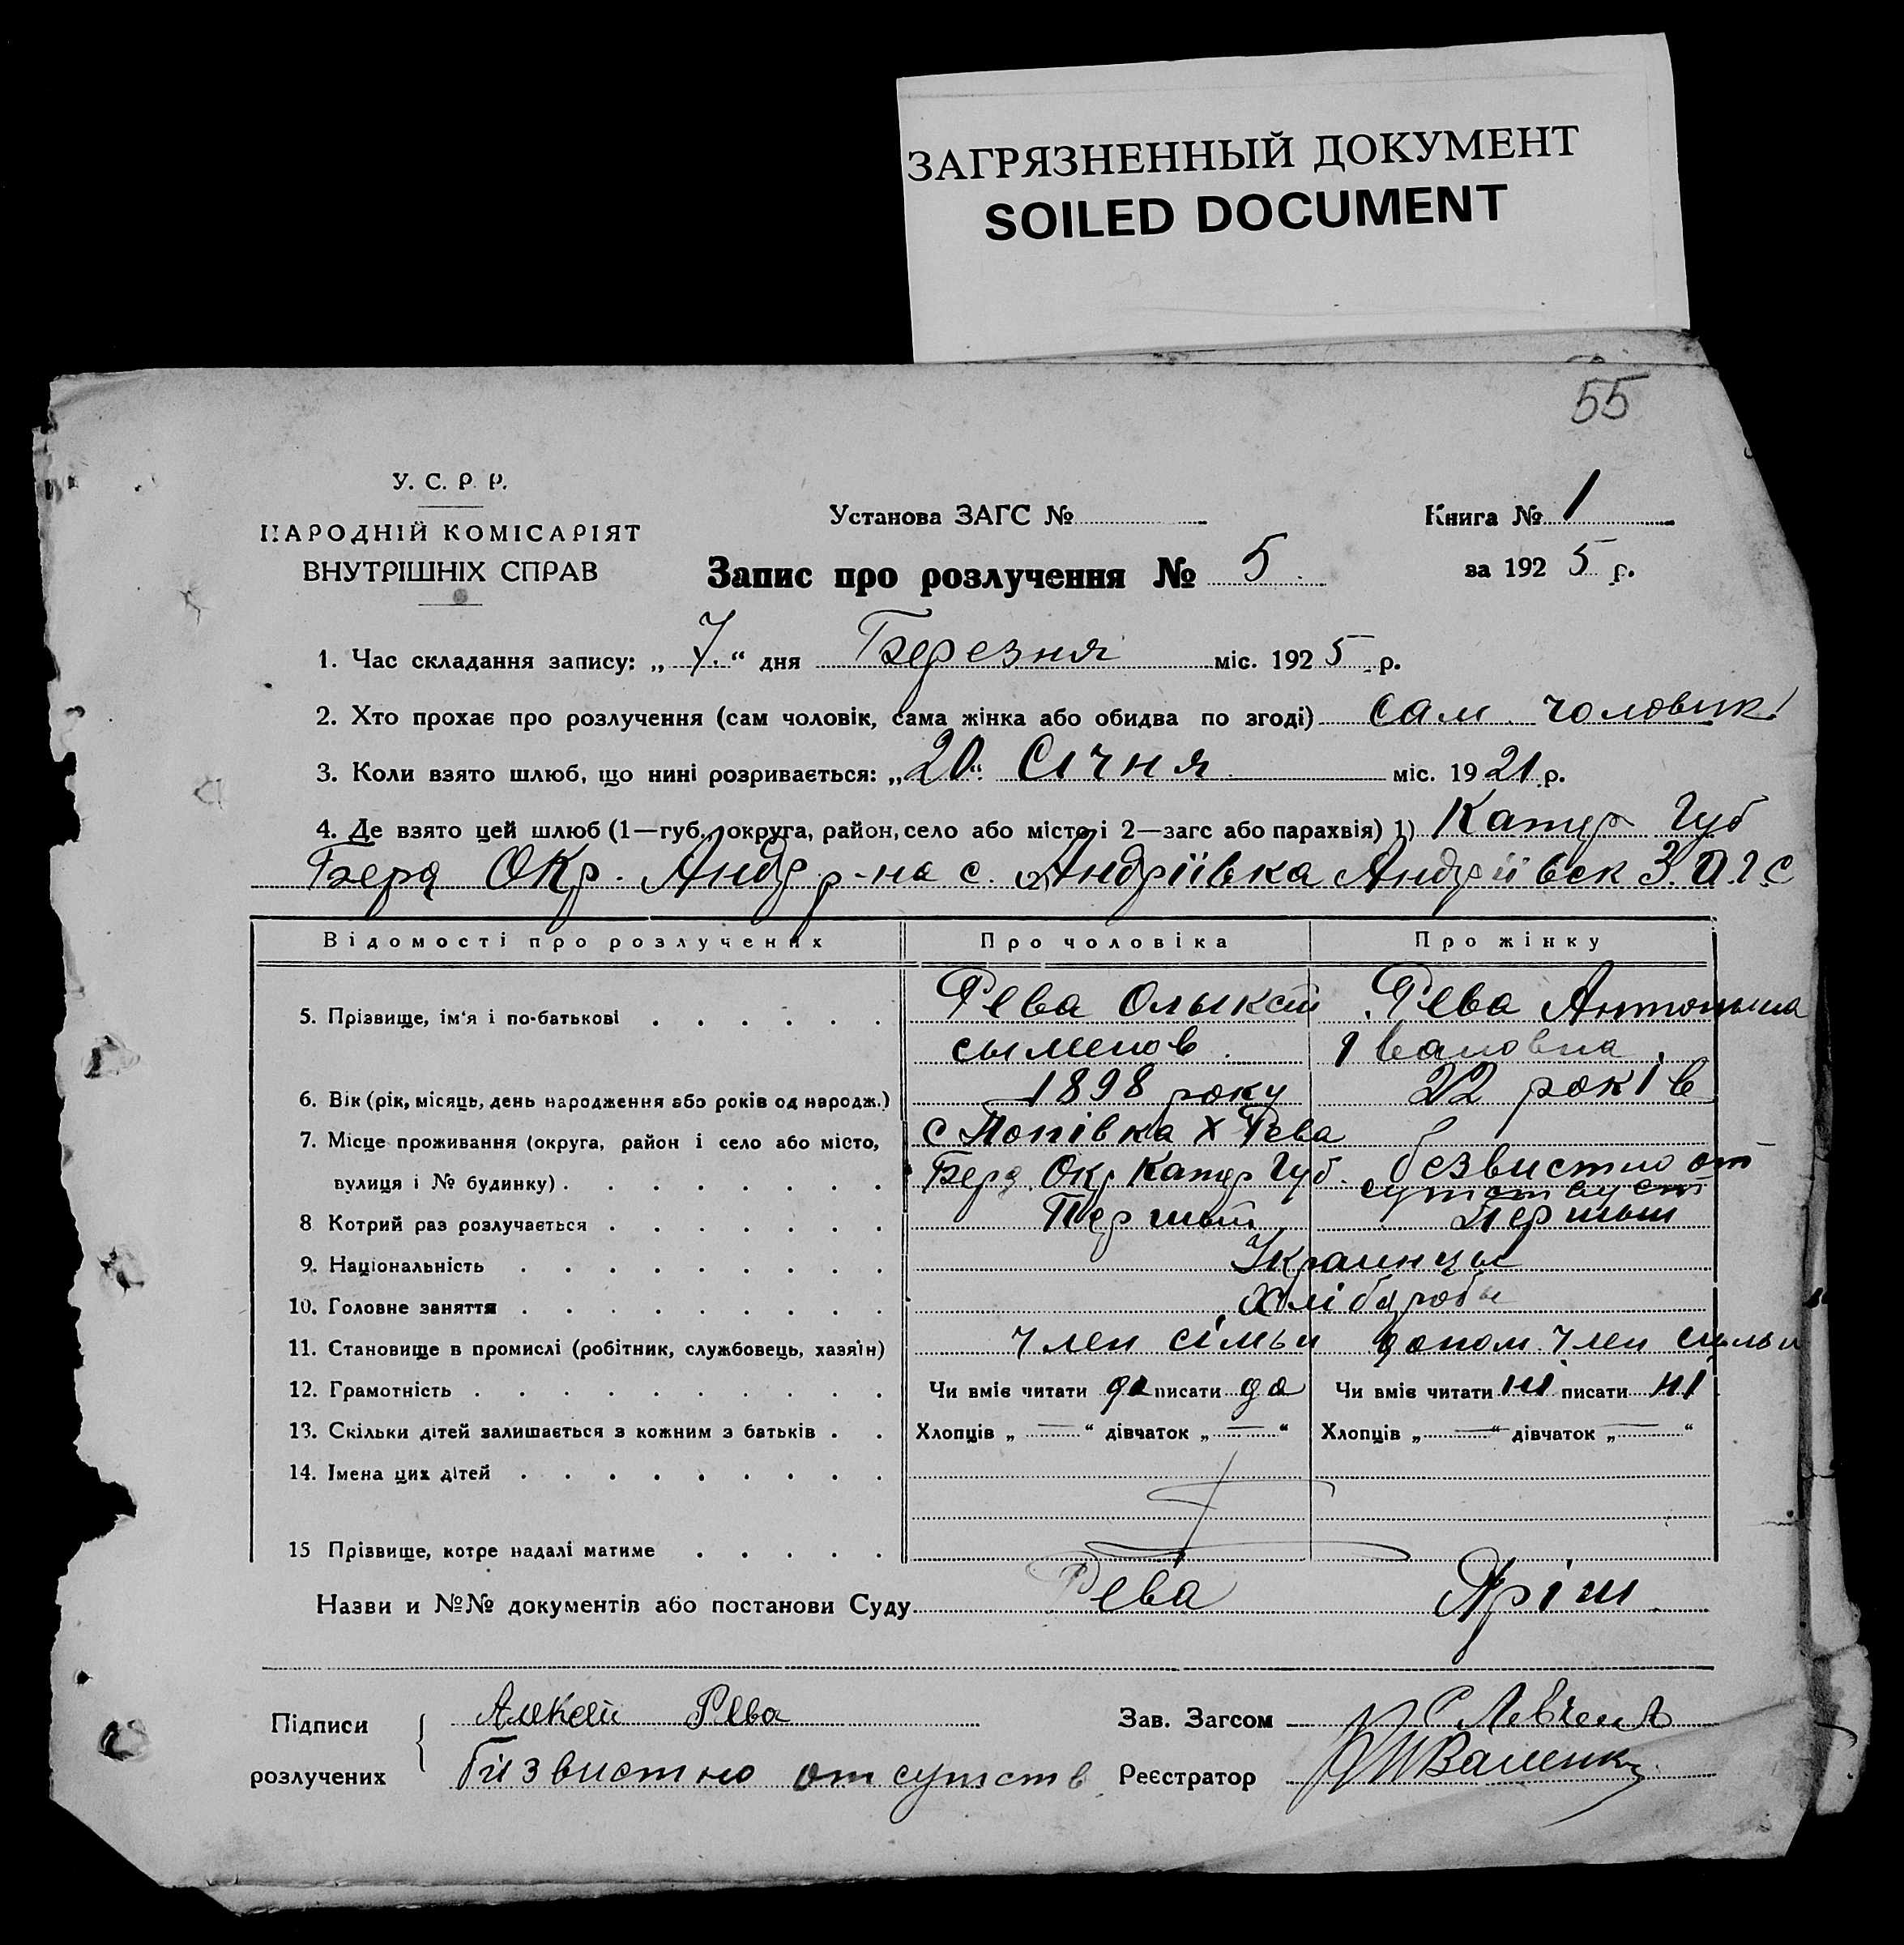 ЗАГРЯЗНЕННЫЙ ДОКУМЕНТ
SOILED DOCUMENT
55
У. С. Р. Р.
НАРОДНІЙ КОМІСАРІЯТ
ВНУТРІШНІХ СПРАВ
Установа ЗАГС №
Книга № 1
Запис про розлучення № 5
за 1925 р.
1. Час складання запису: „7.“ дня Березня міс. 1925 р.
2. Хто прохає про розлучення (сам чоловік, сама жінка або обидва по згоді) сам чоловик
3. Коли взято шлюб, що нині розривається: „20“ Січня міс. 1921 р.
4. Де взято цей шлюб (1—губ., округа, район, село або місто і 2—загс або парахвія) 1) Катер Губ
Берд Окр. Андр р-на с. Андріівка Андріівск З.А.Г.С
Відомості про розлучених Про чоловіка Про жінку
5. Прізвище, ім'я і по-батькові Рева Олыксій Рева Антонына
сыменов Івановна
6. Вік (рік, місяць, день народження або років од народж.) 1898 року 22 років
7. Місце проживання (округа, район і село або місто, с Попівка Х Рева
вулиця і № будинку) Берд. Окр Катер Губ. безвистно от
сутствует
8 Котрий раз розлучається Першый Першый
9. Національність Украинцы
10. Головне заняття Хлібороби
11. Становище в промислі (робітник, службовець, хазяїн) член сімьи допом. член симьи
12. Грамотність Чи вміє читати да писати да Чи вміє читати ні писати ні
13. Скільки дітей залишається з кожним з батьків Хлопців „—“ дівчаток „—“ Хлопців „—“ дівчаток „—“
14. Імена цих дітей
15 Прізвище, котре надалі матиме
Назви и №№ документів або постанови Суду Рева Яріш
Підписи Алксей Рева Зав. Загсом
розлучених Бизвистно отсутств. Реєстратор